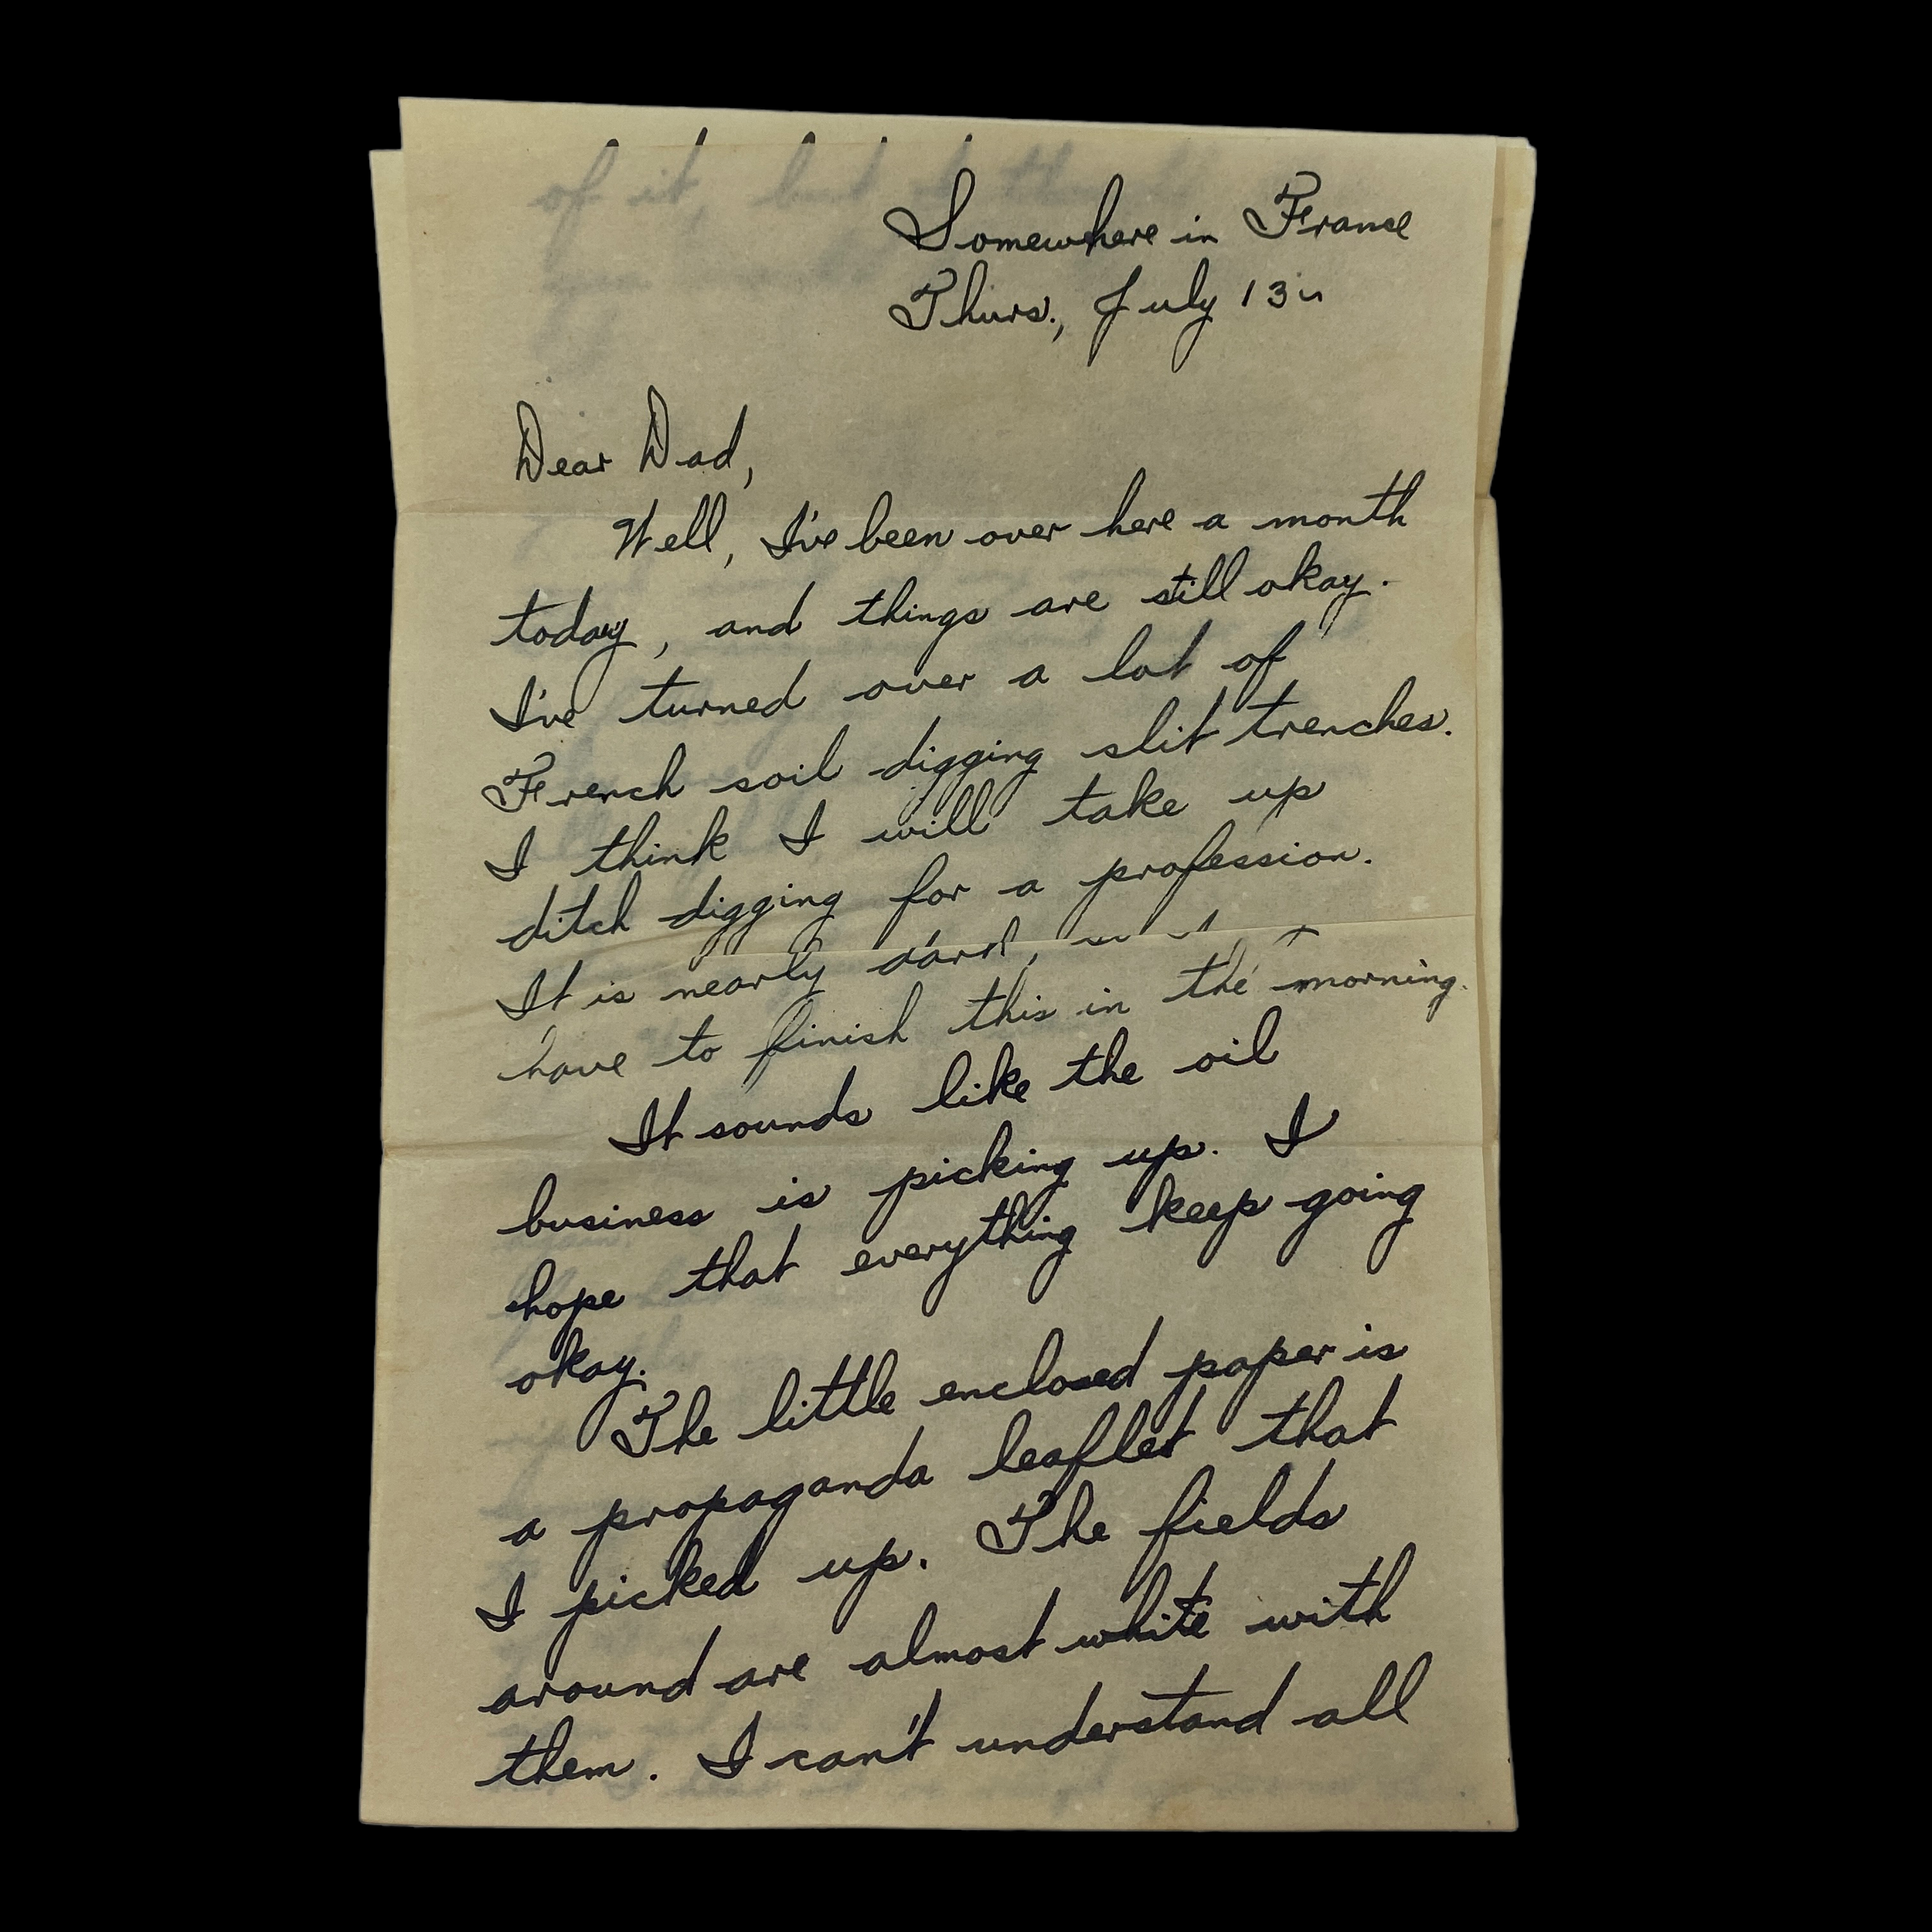 Somewhere in France
Thurs., July 13
Dear Dad,
Well, I've been over here a month
today, and things are still okay.
I've turned over a lot of
French soil digging slit trenches.
I think I will take up
ditch digging for a profession.
It is nearly dark,
have to finish this in the morning.
It sounds like the oil
business is picking up. I
hope that everything keep going
okay.
The little enclosed paper is
a propaganda leaflet that
I picked up. The fields
around are almost white with
them. I can't understand all